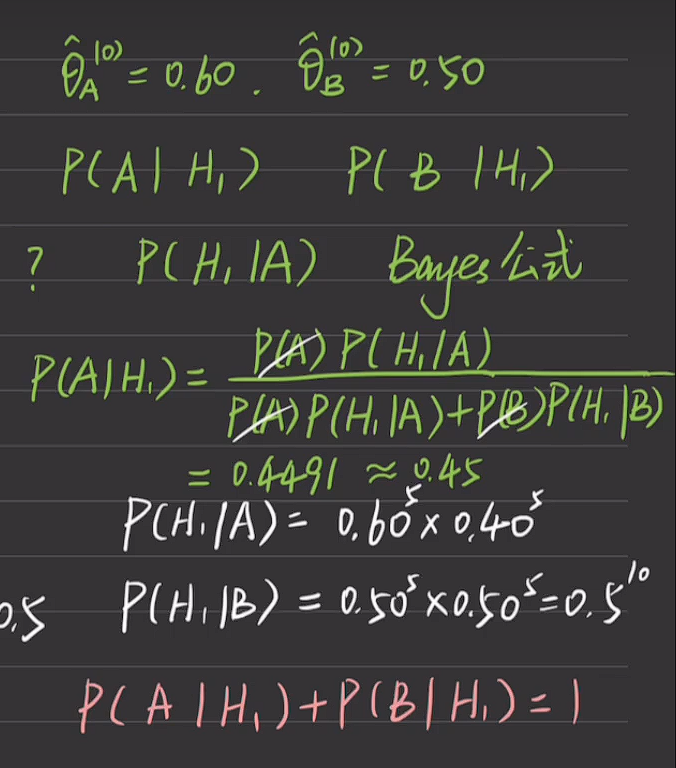 θ̂_A^(0) = 0.60 . θ̂_B^(0) = 0.50
P(A | H₁) P( B | H₁)
? P( H₁ | A) Bayes公式
P(A|H₁) = P(A) P( H₁ | A) / P(A) P(H₁ | A) + P(B) P(H₁ | B)
= 0.4491 ≈ 0.45
P(H₁ | A) = 0.60⁵ × 0.40⁵
0.5 P(H₁ | B) = 0.50⁵ × 0.50⁵ = 0.5¹⁰
P( A | H₁) + P(B | H₁) = 1